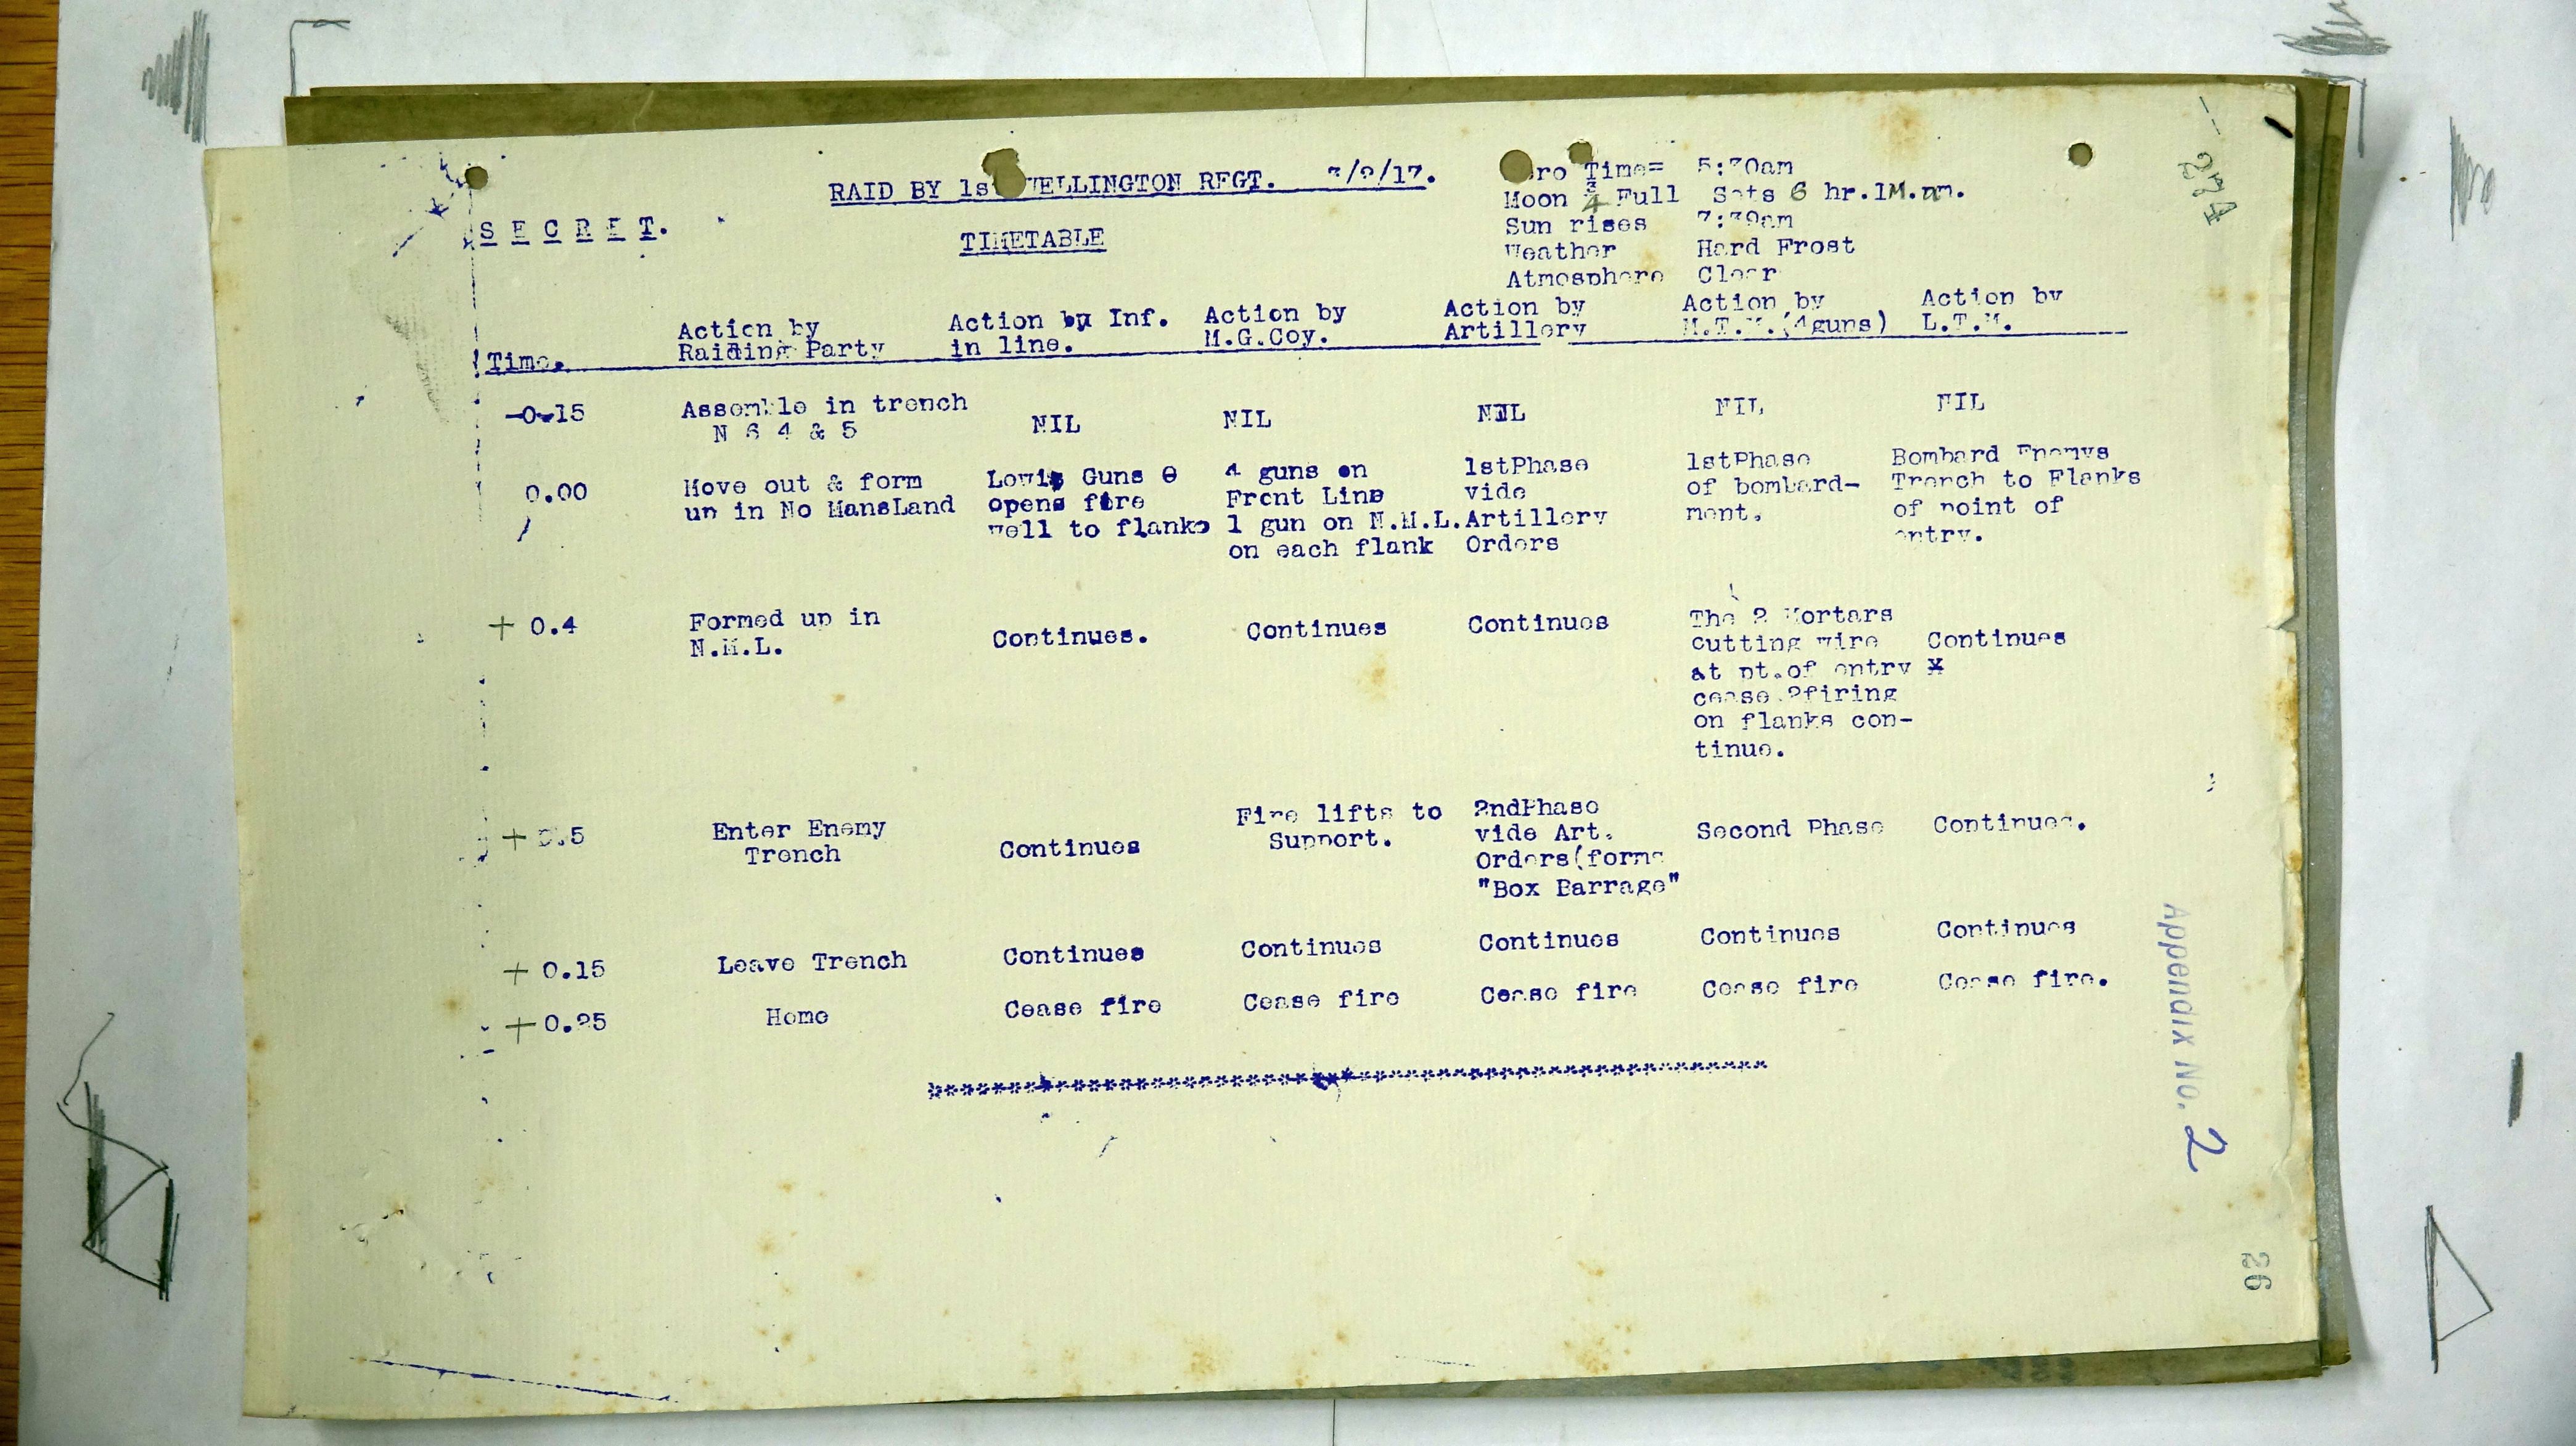 RAID BY 1st WELLINGTON REGT. 3/2/17.
SECRET.
TIMETABLE
Zero Time= 5:30am
Moon 3/4 Full Sets 6 hr.1M.am.
Sun rises 7:30am
Weather Hard Frost
Atmosphere Clear
Time.
Action by
Raiding Party
Action by Inf.
in line.
Action by
M.G.Coy.
Action by
Artillery
Action by
M.T.M.(4guns)
Action by
L.T.M.
-0.15
Assemble in trench
N 6 4 & 5
NIL
NIL
NIL
NIL
NIL
0.00
Move out & form
up in No MansLand
Lewis Guns
opens fire
well to flanks
4 guns on
Front Line
1 gun on N.M.L.
on each flank
1stPhase
vide
Artillery
Orders
1stPhase
of bombard-
ment.
Bombard Enemys
Trench to Flanks
of point of
entry.
+ 0.4
Formed up in
N.M.L.
Continues.
Continues
Continues
The 2 Mortars
cutting wire
at pt.of entry
cease.2firing
on flanks con-
tinue.
Continues
+ 0.5
Enter Enemy
Trench
Continues
Fire lifts to
Support.
2ndPhase
vide Art.
Orders(forms
"Box Barrage"
Second Phase
Continues.
+ 0.15
Leave Trench
Continues
Continues
Continues
Continues
Continues
+ 0.25
Home
Cease fire
Cease fire
Cease fire
Cease fire
Cease fire.
Appendix No. 2
26